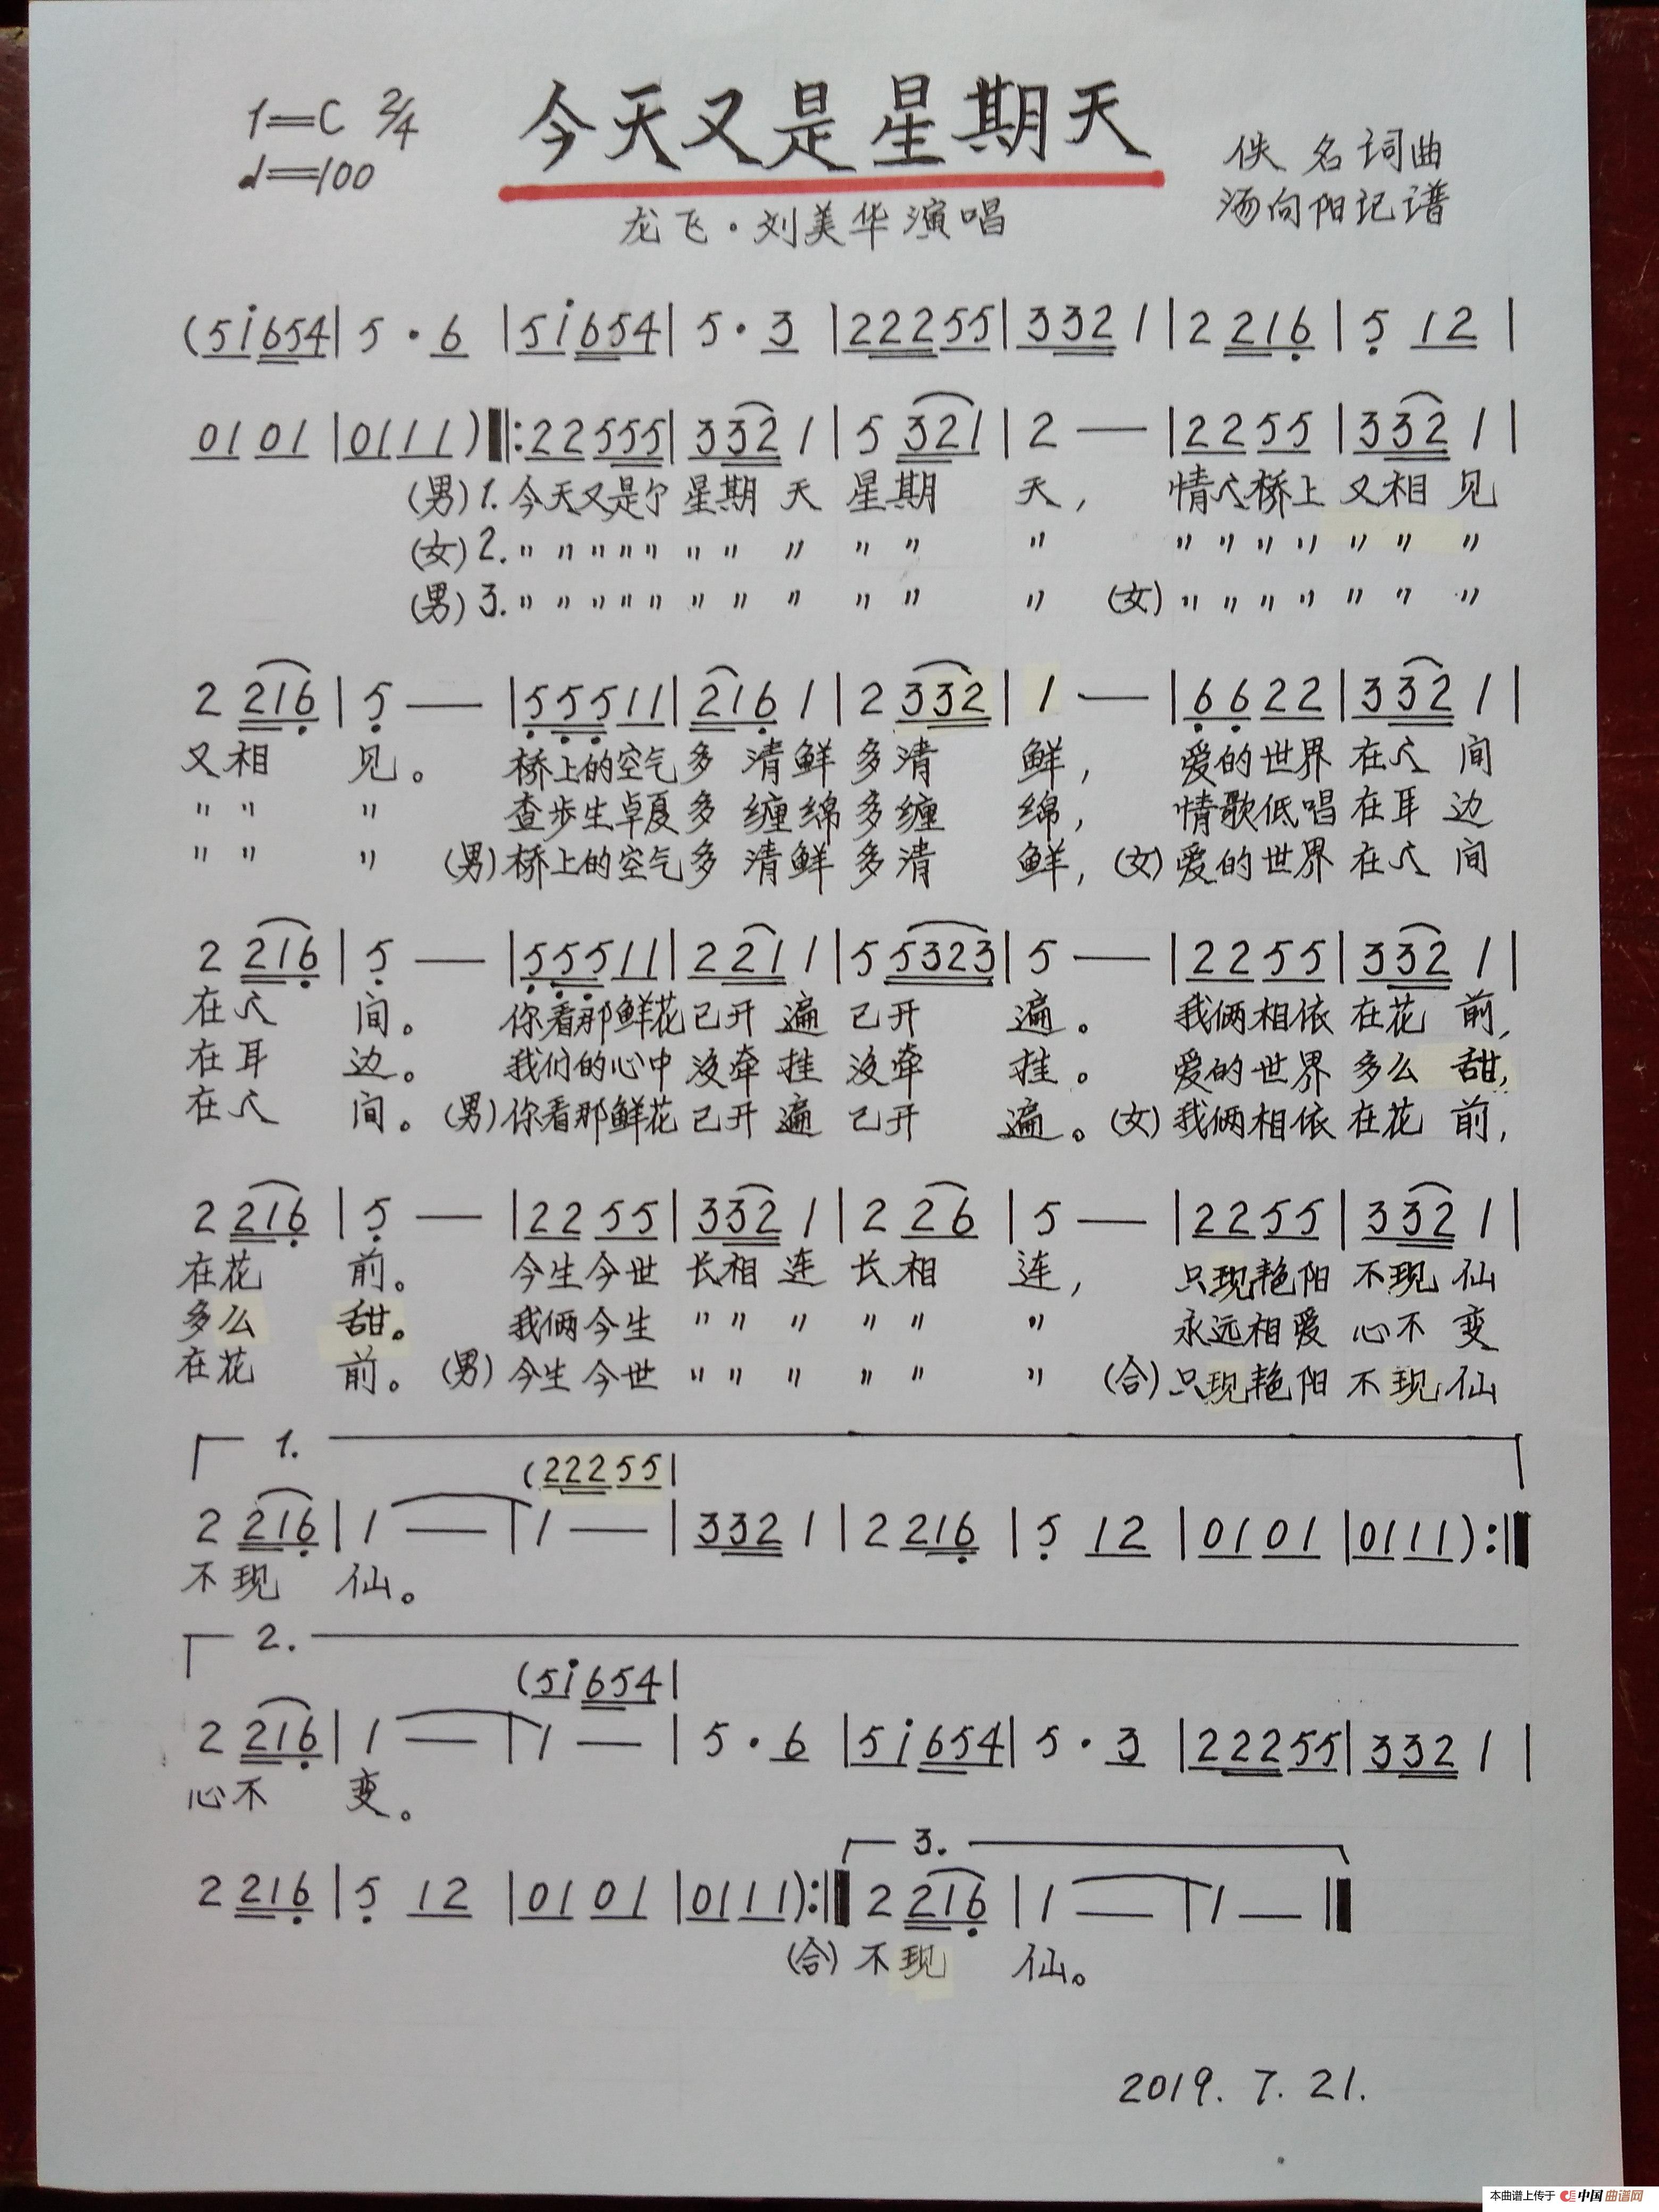 1=C 2/4
♩=100
今天又是星期天
佚名词曲
汤向阳记谱
龙飞·刘美华演唱
(5i654| 5·6 |5i654| 5·3 |22255|332 1|2 216|5 12|
0101|0111)‖:22555|332 1|5 321|2 —|2255|332 1|
(男)1.今天又是个星期天星期天,情人桥上又相见
(女)2.〃〃〃〃〃〃〃〃〃〃〃〃〃〃〃〃〃〃
(男)3.〃〃〃〃〃〃〃〃〃〃〃(女)〃〃〃〃〃〃〃
2 216|5 —|55511|216 1|2 332|1 —|6622|332 1|
又相见。桥上的空气多清鲜多清鲜,爱的世界在人间
〃〃〃查步生卓夏多缠绵多缠绵,情歌低唱在耳边
〃〃〃(男)桥上的空气多清鲜多清鲜,(女)爱的世界在人间
2 216|5 —|55511|2 21 1|5 5323|5 —|2255|332 1|
在人间。你看那鲜花已开遍已开遍。我俩相依在花前,
在耳边。我们的心中没牵挂没牵挂。爱的世界多么甜,
在人间。(男)你看那鲜花已开遍已开遍。(女)我俩相依在花前,
2 216|5 —|2255|332 1|2 26|5 —|2255|332 1|
在花前。今生今世长相连长相连,只现艳阳不现仙
多么甜。我俩今生〃〃〃〃〃〃永远相爱心不变
在花前。(男)今生今世〃〃〃〃〃〃(合)只现艳阳不现仙
1.
(22255|
2 216|1 —|1 —|332 1|2 216|5 12|0101|0111):‖
不现仙。
2.
(5i654|
2 216|1 —|1 —|5·6|5i654|5·3|22255|332 1|
心不变。
3.
2 216|5 12|0101|0111):‖2 216|1 —|1 —‖
(合)不现仙。
2019.7.21.
本曲谱上传于 中国曲谱网